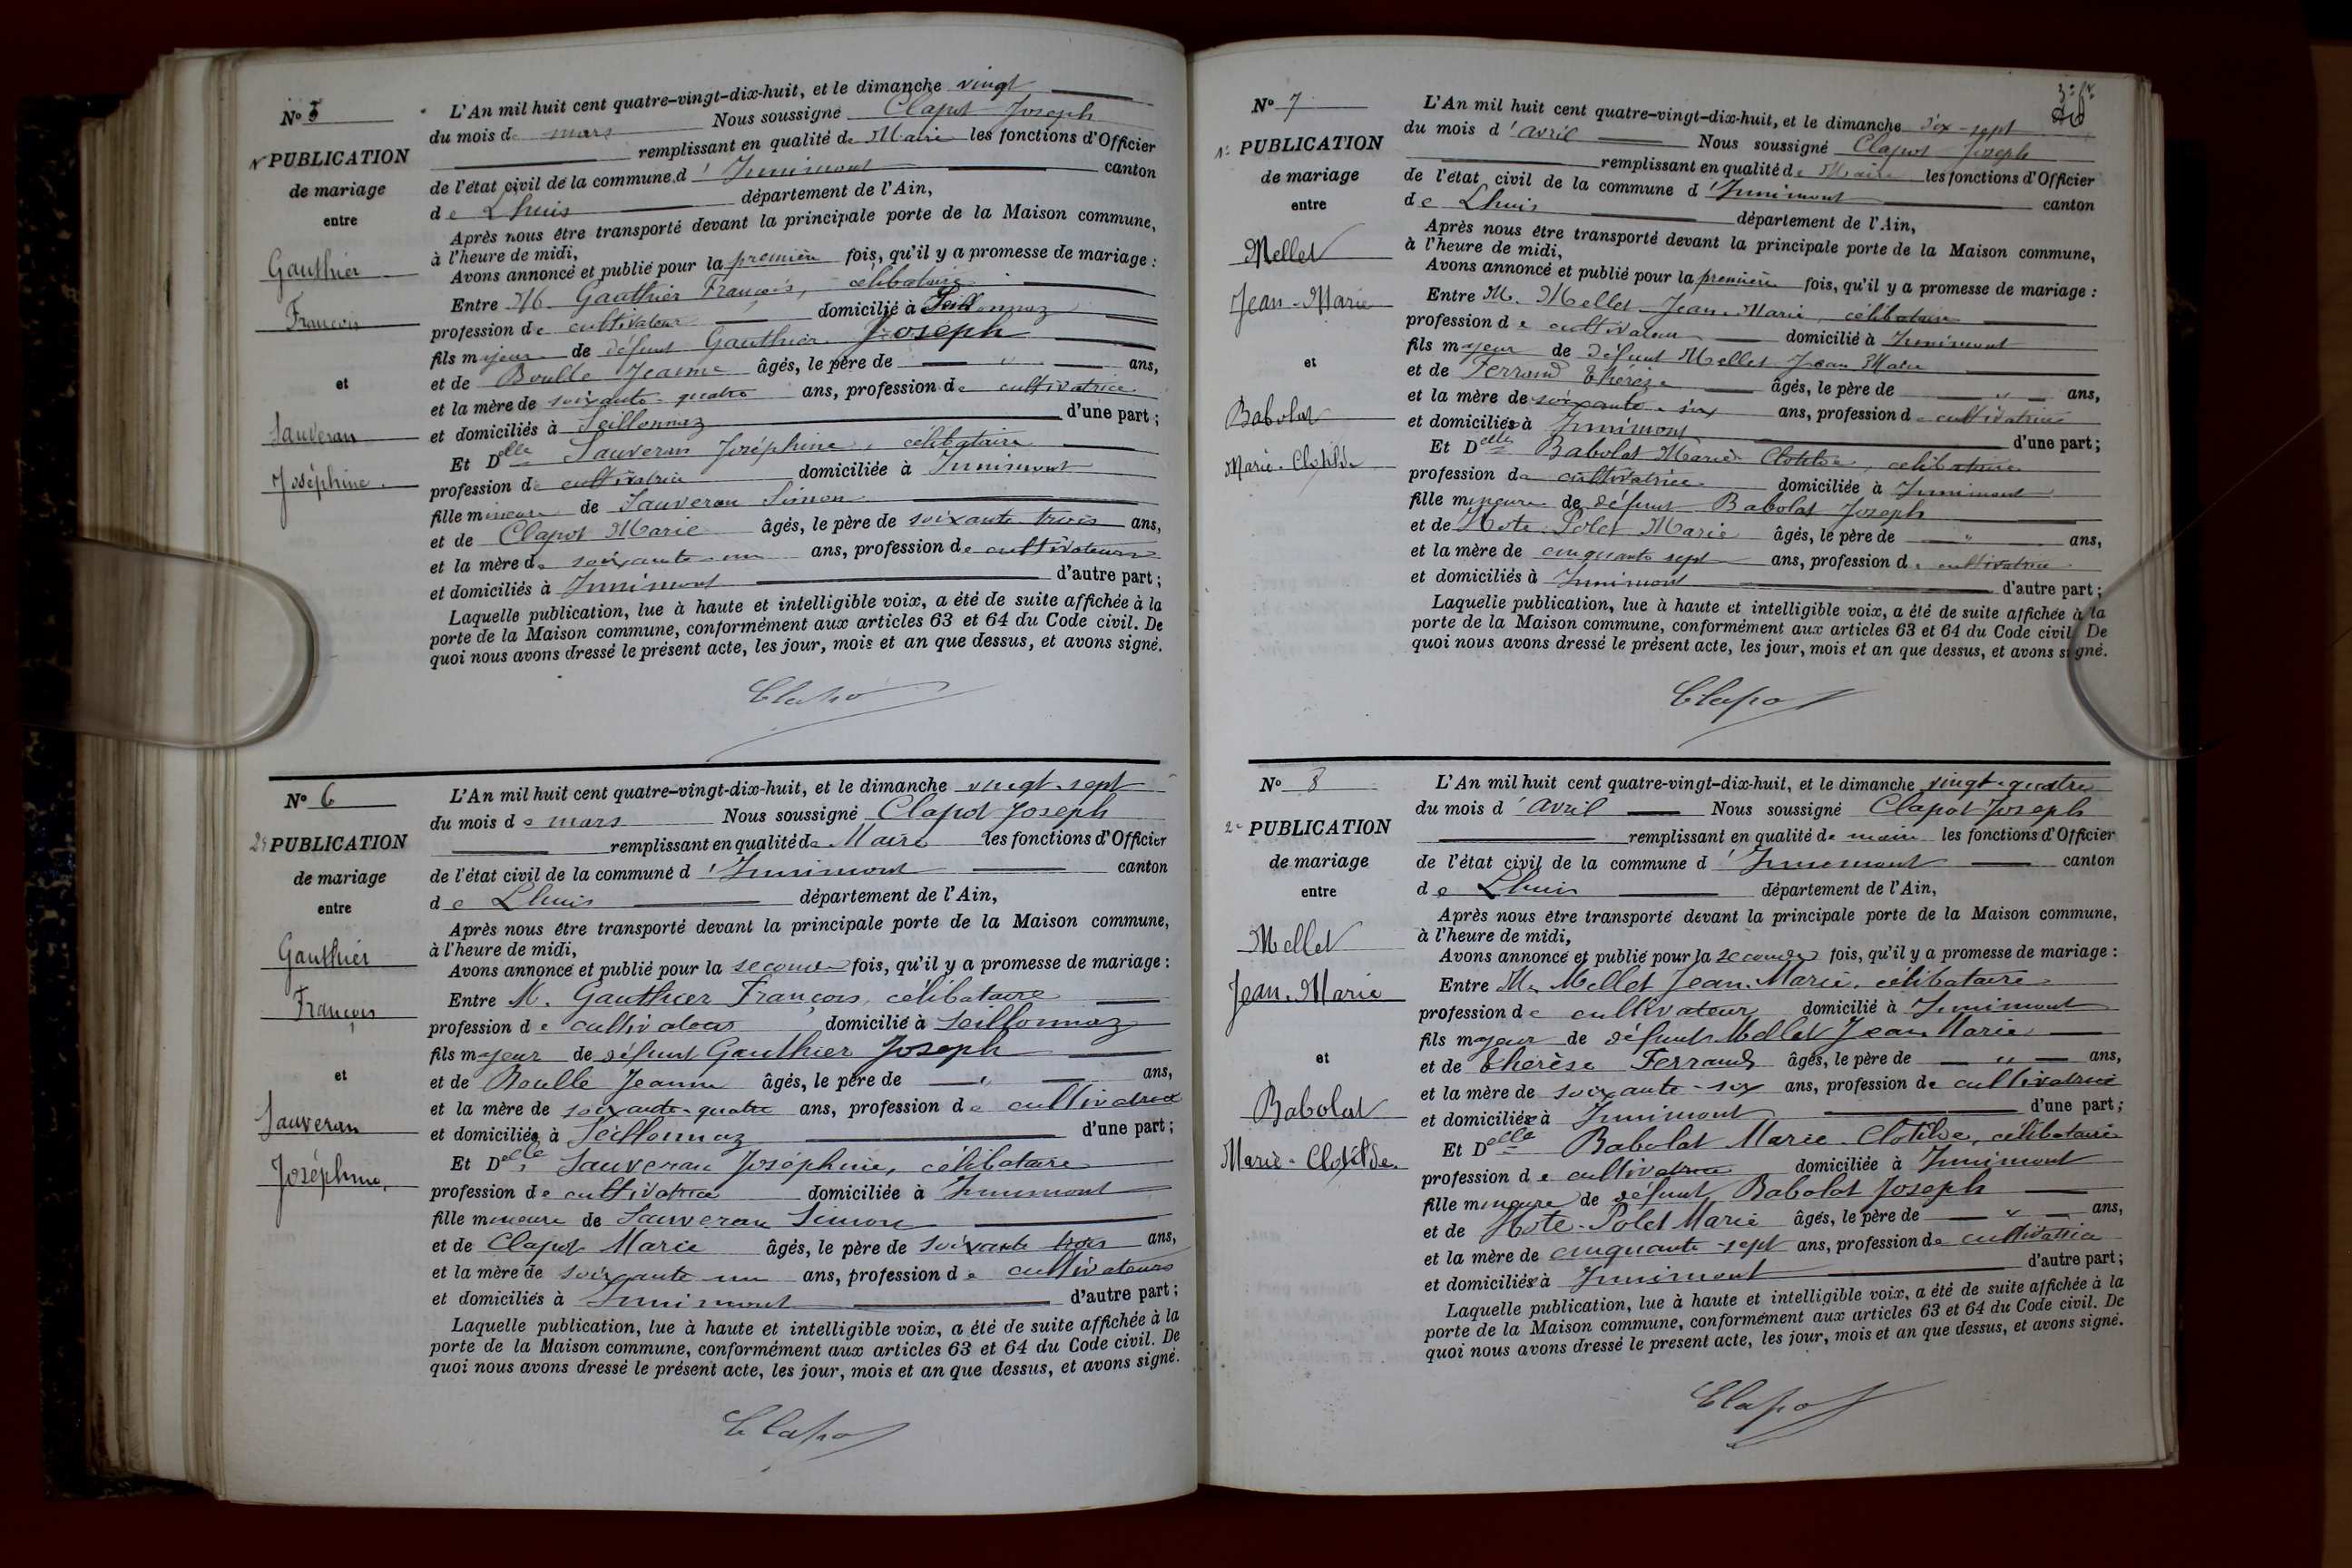 N° 5
PUBLICATION
de mariage
entre
Gauthier
François
et
Sauveran
Joséphine
L'An mil huit cent quatre-vingt-dix-huit, et le dimanche vingt
du mois de mars Nous soussigné Clapot Joseph
remplissant en qualité de Maire les fonctions d'Officier
de l'état civil de la commune d'Innimont canton
de Lhuis département de l'Ain,
Après nous être transporté devant la principale porte de la Maison commune,
à l'heure de midi,
Avons annoncé et publié pour la première fois, qu'il y a promesse de mariage :
Entre M. Gauthier François, célibataire
profession de cultivateur domicilié à Seillonnaz
fils majeur de défunt Gauthier Joseph
et de Boulle Jeanne âgés, le père de " ans,
et la mère de soixante-quatre ans, profession de cultivatrice
et domiciliés à Seillonnaz d'une part ;
Et Delle Sauveran Joséphine, célibataire
profession de cultivatrice domiciliée à Innimont
fille mineure de Sauveran Simon
et de Clapot Marie âgés, le père de soixante trois ans,
et la mère de soixante-un ans, profession de cultivateurs
et domiciliés à Innimont d'autre part ;
Laquelle publication, lue à haute et intelligible voix, a été de suite affichée à la
porte de la Maison commune, conformément aux articles 63 et 64 du Code civil. De
quoi nous avons dressé le présent acte, les jour, mois et an que dessus, et avons signé.
Clapot
N° 6
2e PUBLICATION
de mariage
entre
Gauthier
François
et
Sauveran
Joséphine
L'An mil huit cent quatre-vingt-dix-huit, et le dimanche vingt-sept
du mois de mars Nous soussigné Clapot Joseph
remplissant en qualité de Maire les fonctions d'Officier
de l'état civil de la commune d'Innimont canton
de Lhuis département de l'Ain,
Après nous être transporté devant la principale porte de la Maison commune,
à l'heure de midi,
Avons annoncé et publié pour la seconde fois, qu'il y a promesse de mariage :
Entre M. Gauthier François, célibataire
profession de cultivateur domicilié à Seillonnaz
fils majeur de défunt Gauthier Joseph
et de Boulle Jeanne âgés, le père de " ans,
et la mère de soixante-quatre ans, profession de cultivatrice
et domiciliés à Seillonnaz d'une part ;
Et Delle Sauveran Joséphine, célibataire
profession de cultivatrice domiciliée à Innimont
fille mineure de Sauveran Simon
et de Clapot Marie âgés, le père de soixante trois ans,
et la mère de soixante-un ans, profession de cultivateurs
et domiciliés à Innimont d'autre part ;
Laquelle publication, lue à haute et intelligible voix, a été de suite affichée à la
porte de la Maison commune, conformément aux articles 63 et 64 du Code civil. De
quoi nous avons dressé le présent acte, les jour, mois et an que dessus, et avons signé.
Clapot
N° 7
PUBLICATION
de mariage
entre
Mellet
Jean-Marie
et
Babolat
Marie-Clotilde
L'An mil huit cent quatre-vingt-dix-huit, et le dimanche dix-sept
du mois d'avril Nous soussigné Clapot Joseph
remplissant en qualité de Maire les fonctions d'Officier
de l'état civil de la commune d'Innimont canton
de Lhuis département de l'Ain,
Après nous être transporté devant la principale porte de la Maison commune,
à l'heure de midi,
Avons annoncé et publié pour la première fois, qu'il y a promesse de mariage :
Entre M. Mellet Jean-Marie, célibataire
profession de cultivateur domicilié à Innimont
fils majeur de défunt Mellet Jean Marie
et de Ferrand Thérèse âgés, le père de " ans,
et la mère de soixante-six ans, profession de cultivatrice
et domiciliés à Innimont d'une part ;
Et Delle Babolat Marie Clotilde, célibataire
profession de cultivatrice domiciliée à Innimont
fille mineure de défunt Babolat Joseph
et de Hote-Polet Marie âgés, le père de " ans,
et la mère de cinquante sept ans, profession de cultivatrice
et domiciliés à Innimont d'autre part ;
Laquelle publication, lue à haute et intelligible voix, a été de suite affichée à la
porte de la Maison commune, conformément aux articles 63 et 64 du Code civil. De
quoi nous avons dressé le présent acte, les jour, mois et an que dessus, et avons signé.
Clapot
N° 8
2e PUBLICATION
de mariage
entre
Mellet
Jean-Marie
et
Babolat
Marie-Clotilde
L'An mil huit cent quatre-vingt-dix-huit, et le dimanche vingt-quatre
du mois d'avril Nous soussigné Clapot Joseph
remplissant en qualité de maire les fonctions d'Officier
de l'état civil de la commune d'Innimont canton
de Lhuis département de l'Ain,
Après nous être transporté devant la principale porte de la Maison commune,
à l'heure de midi,
Avons annoncé et publié pour la seconde fois, qu'il y a promesse de mariage :
Entre M. Mellet Jean-Marie, célibataire
profession de cultivateur domicilié à Innimont
fils majeur de défunt Mellet Jean Marie
et de Thérèse Ferrand âgés, le père de " ans,
et la mère de soixante-six ans, profession de cultivatrice
et domiciliés à Innimont d'une part ;
Et Delle Babolat Marie-Clotilde, célibataire
profession de cultivatrice domiciliée à Innimont
fille mineure de défunt Babolat Joseph
et de Hote-Polet Marie âgés, le père de " ans,
et la mère de cinquante-sept ans, profession de cultivatrice
et domiciliés à Innimont d'autre part ;
Laquelle publication, lue à haute et intelligible voix, a été de suite affichée à la
porte de la Maison commune, conformément aux articles 63 et 64 du Code civil. De
quoi nous avons dressé le present acte, les jour, mois et an que dessus, et avons signé.
Clapot